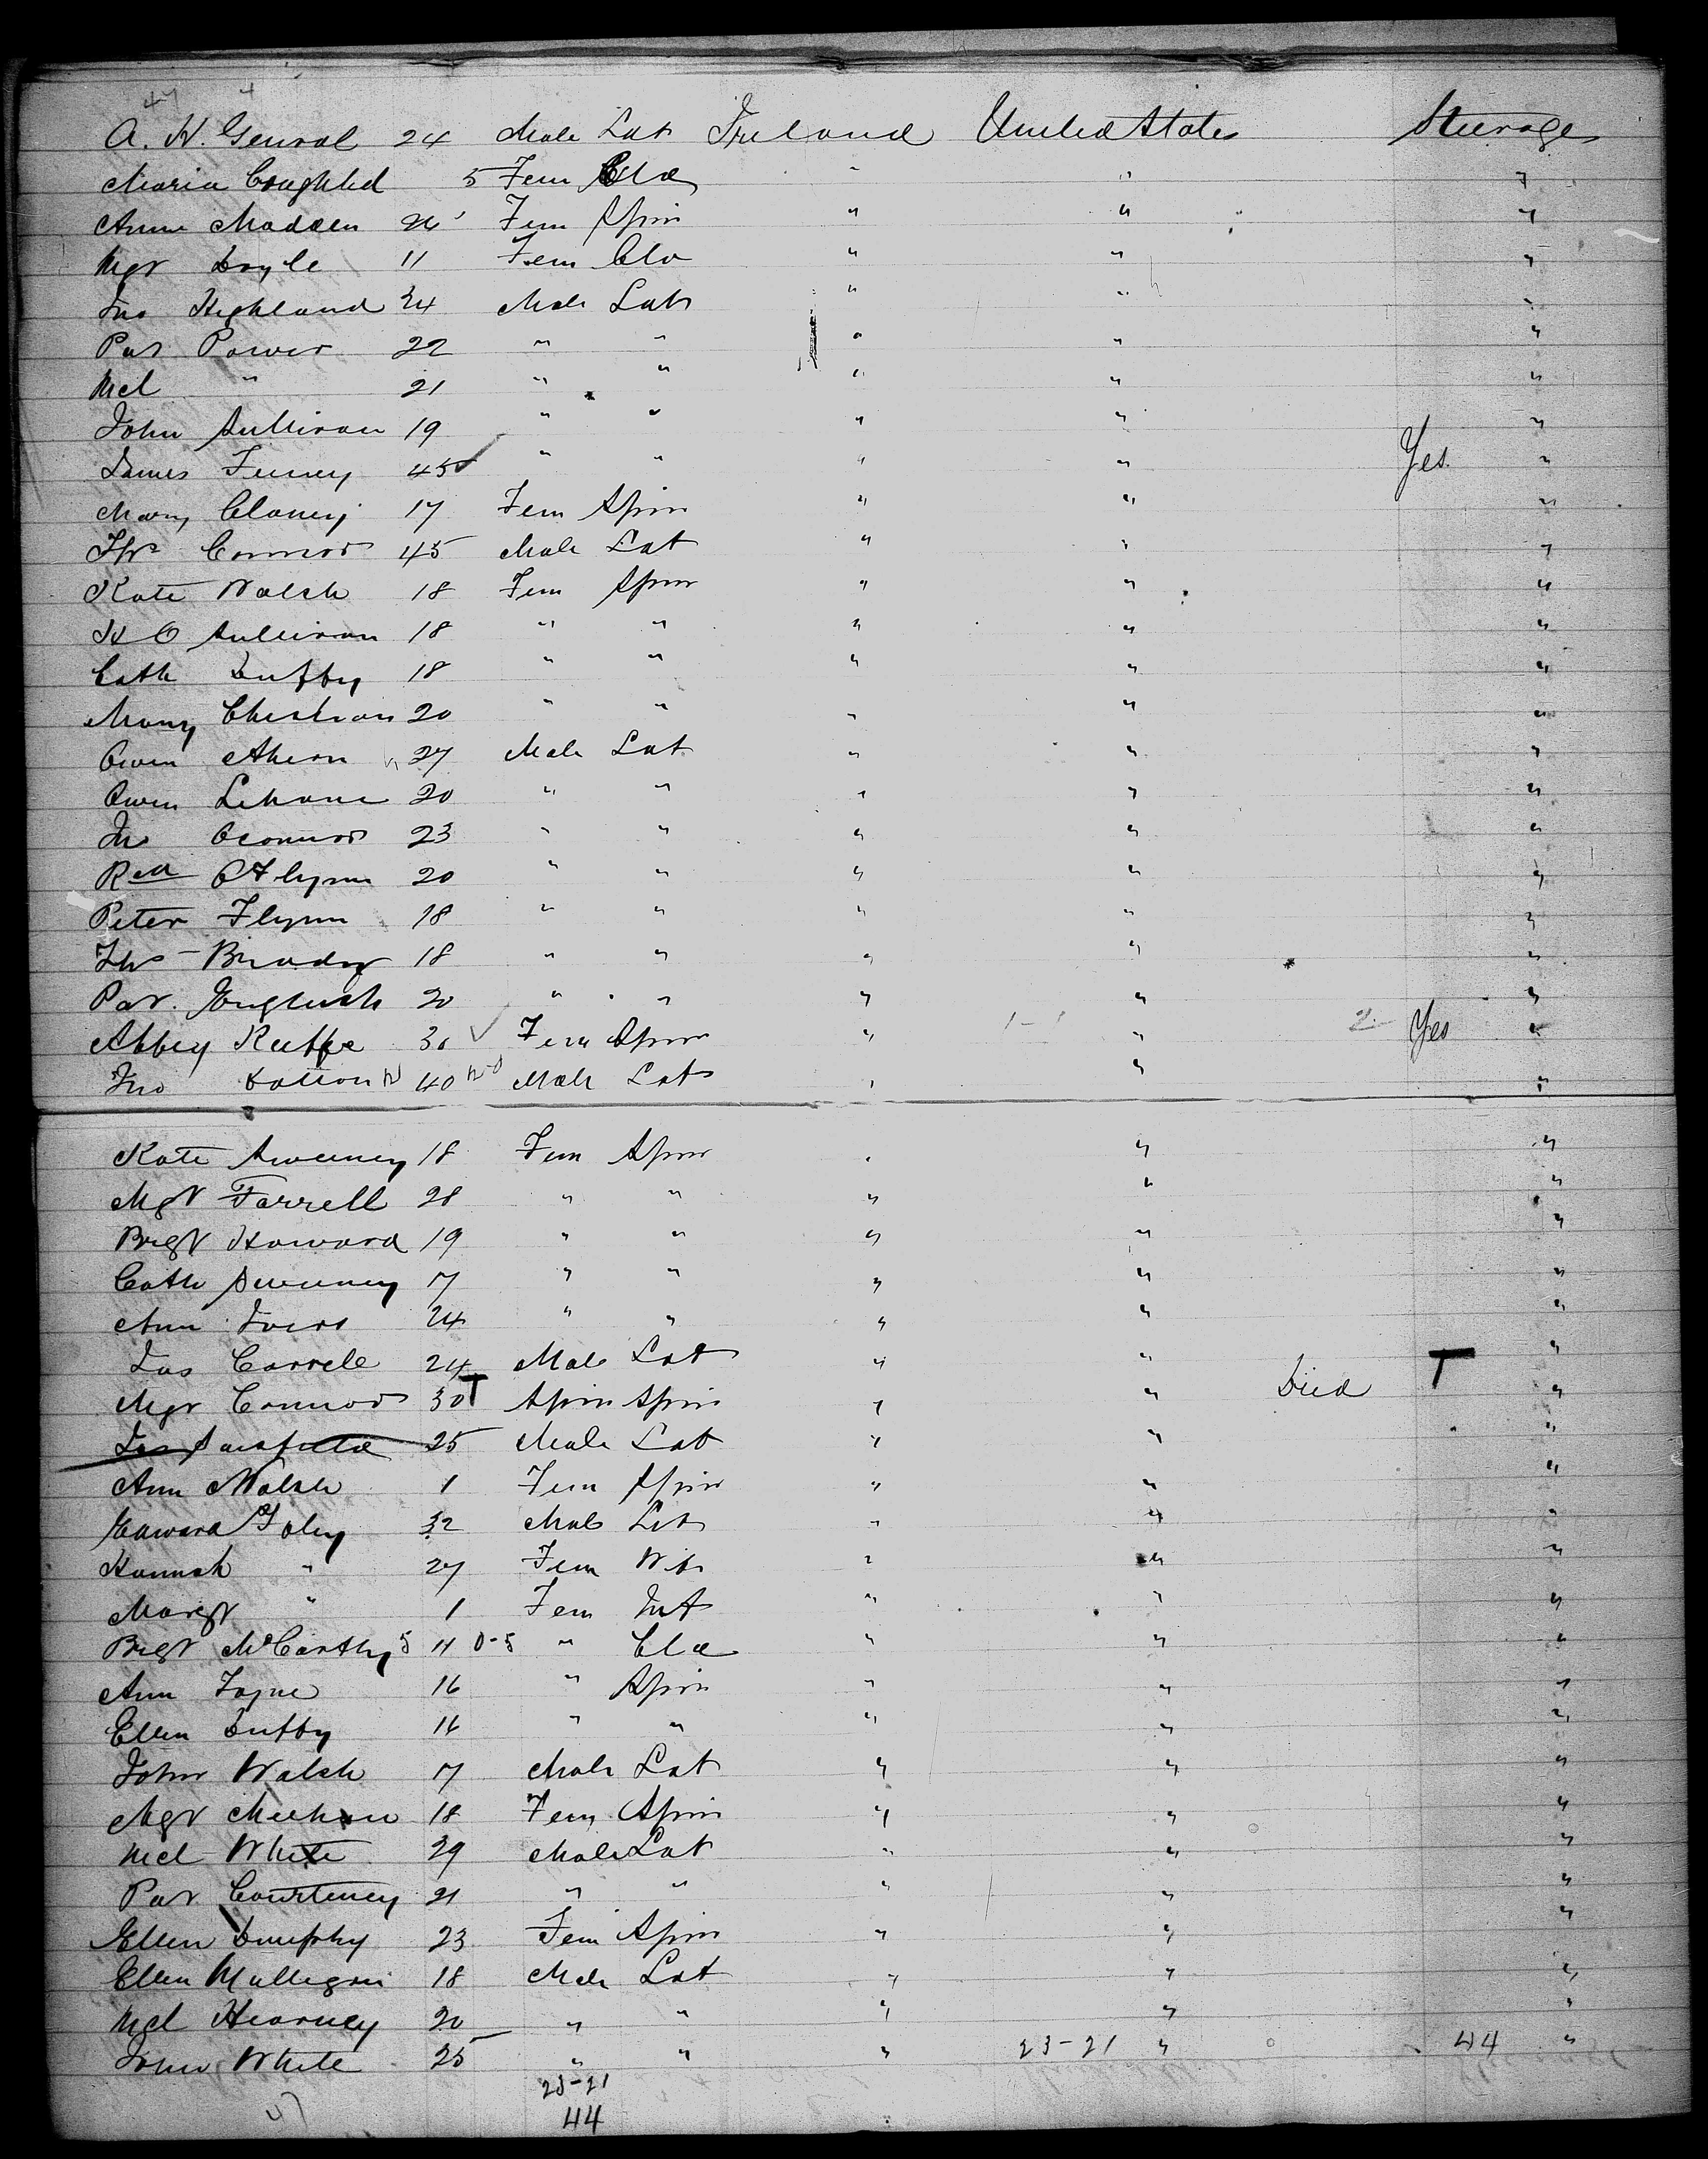 47 4
A. H. Genral 24 Male Lab Ireland United States Steerage
Maria Coughlid 5 Fem Cld " " "
Anne Madden 24 Fem Spin " " "
Mgt Doyle 11 Fem Cld " " "
Jno Highland 24 Male Lab " " "
Pat Power 22 " " " " "
Mcl " 21 " " " " "
John Sullivan 19 " " " " "
James Feeney 45 " " " " Yes. "
Mary Clancy 17 Fem Spin " " "
Ths Connor 45 Male Lab " " "
Kate Walsh 18 Fem Spin " " "
H O Sullivan 18 " " " " "
Cath Duffy 18 " " " " "
Mary 20 " " " " "
Owen Ahern 27 Male Lab " " "
Owen Lehane 20 " " " " "
Jno OConnor 23 " " " " "
Rd O Flynn 20 " " " " "
Peter Flynn 18 " " " " "
Ths Brady 18 " " " " "
Pat. English 20 " " " " "
Abbey Keeffe 30 Fem Spin " 1-1 " 2 Yes "
Jno Dalton 40 Male Lab " " "
Kate Sweeney 18 Fem Spin " " "
Mgt Farrell 28 " " " " "
Brgt Howard 19 " " " " "
Cath Sweeney 17 " " " " "
Ann 24 " " " " "
Jas Carrele 24 Male Lab " " "
Mgt Connor 30 T Spin Spin " " Died T "
Jas Sarsfield 25 Male Lab " " "
Ann Walsh 1 Fem Spin " " "
Edward Foley 32 Male Lab " " "
Hannah " 27 Fem Wife " " "
Margt " 1 Fem Inf " " "
Brgt McCarthy 5 11 0-5 " Cld " " "
Ann Joyne 16 " Spin " " "
Ellen Duffy 16 " " " " "
John Walsh 17 Male Lab " " "
Mgt Meehan 18 Fem Spin " " "
Mcl White 29 Male Lab " " "
Pat Courteney 21 " " " " "
Ellen Dunphy 23 Fem Spin " " "
Ellen Mulligan 18 Male Lab " " "
Mcl Hearney 20 " " " " "
John White 25 " " " 23-21 " 44 "
23-21
44
47